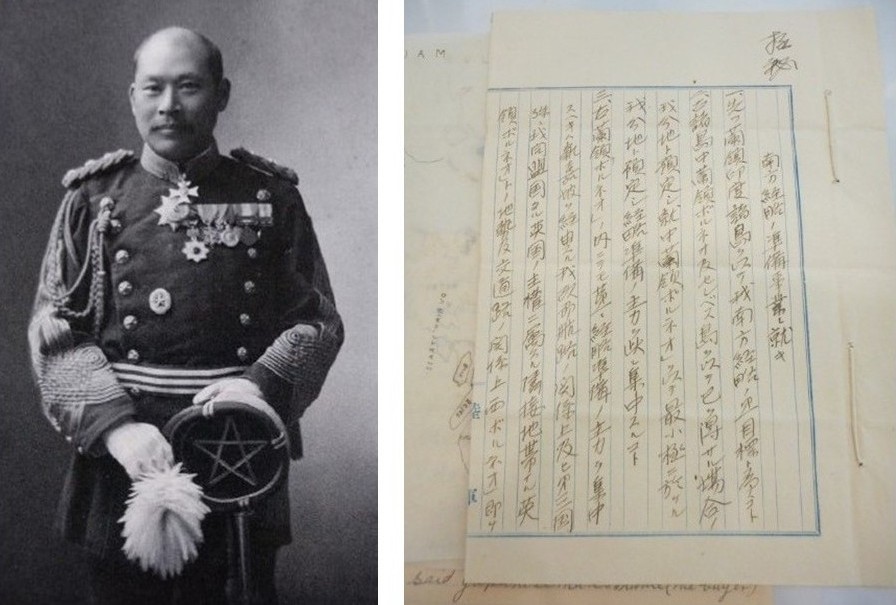 極秘
南方経略ノ準備事業ニ就キ
一、先ツ蘭領印度諸島ヲ以テ我南方経略ノ第一目標ト為スコト
二、右諸島中蘭領ボルネオ及セレベス島ヲ以テ已ヲ得サル場合ノ
我分地ト確定シ就中蘭領「ボルネオ」ヲ以テ最小極ニ於ケル
我分地ト確定シ経略準備ノ主力ヲ此ニ集中スルコト
三、右蘭領「ボルネオ」ノ内ニテモ第一経略準備ノ主力ヲ集中
スヘキ経由スル我以西航路ノ関係上及ヒ第三国
殊ニ我同盟国タル英国ノ主権ニ属スル隣接地帯ナル英
領「ボルネオ」トノ地勢及交通路ノ関係上西「ボルネオ」即チ
AM
陸
軍
said